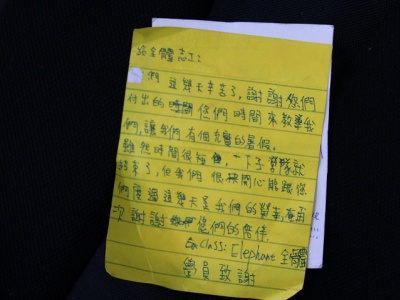 給全體志工:
們 這幾天辛苦了,謝謝您們
付出的 您們 時間 來教導我
們,讓我們有個充實的暑假。
雖然時間很短,一下子營隊就
結束了,但我們 很快開心能跟您
們度過這幾天是我們的榮幸
次謝謝 您們的陪伴
Class: Elephant 全體
學員致謝